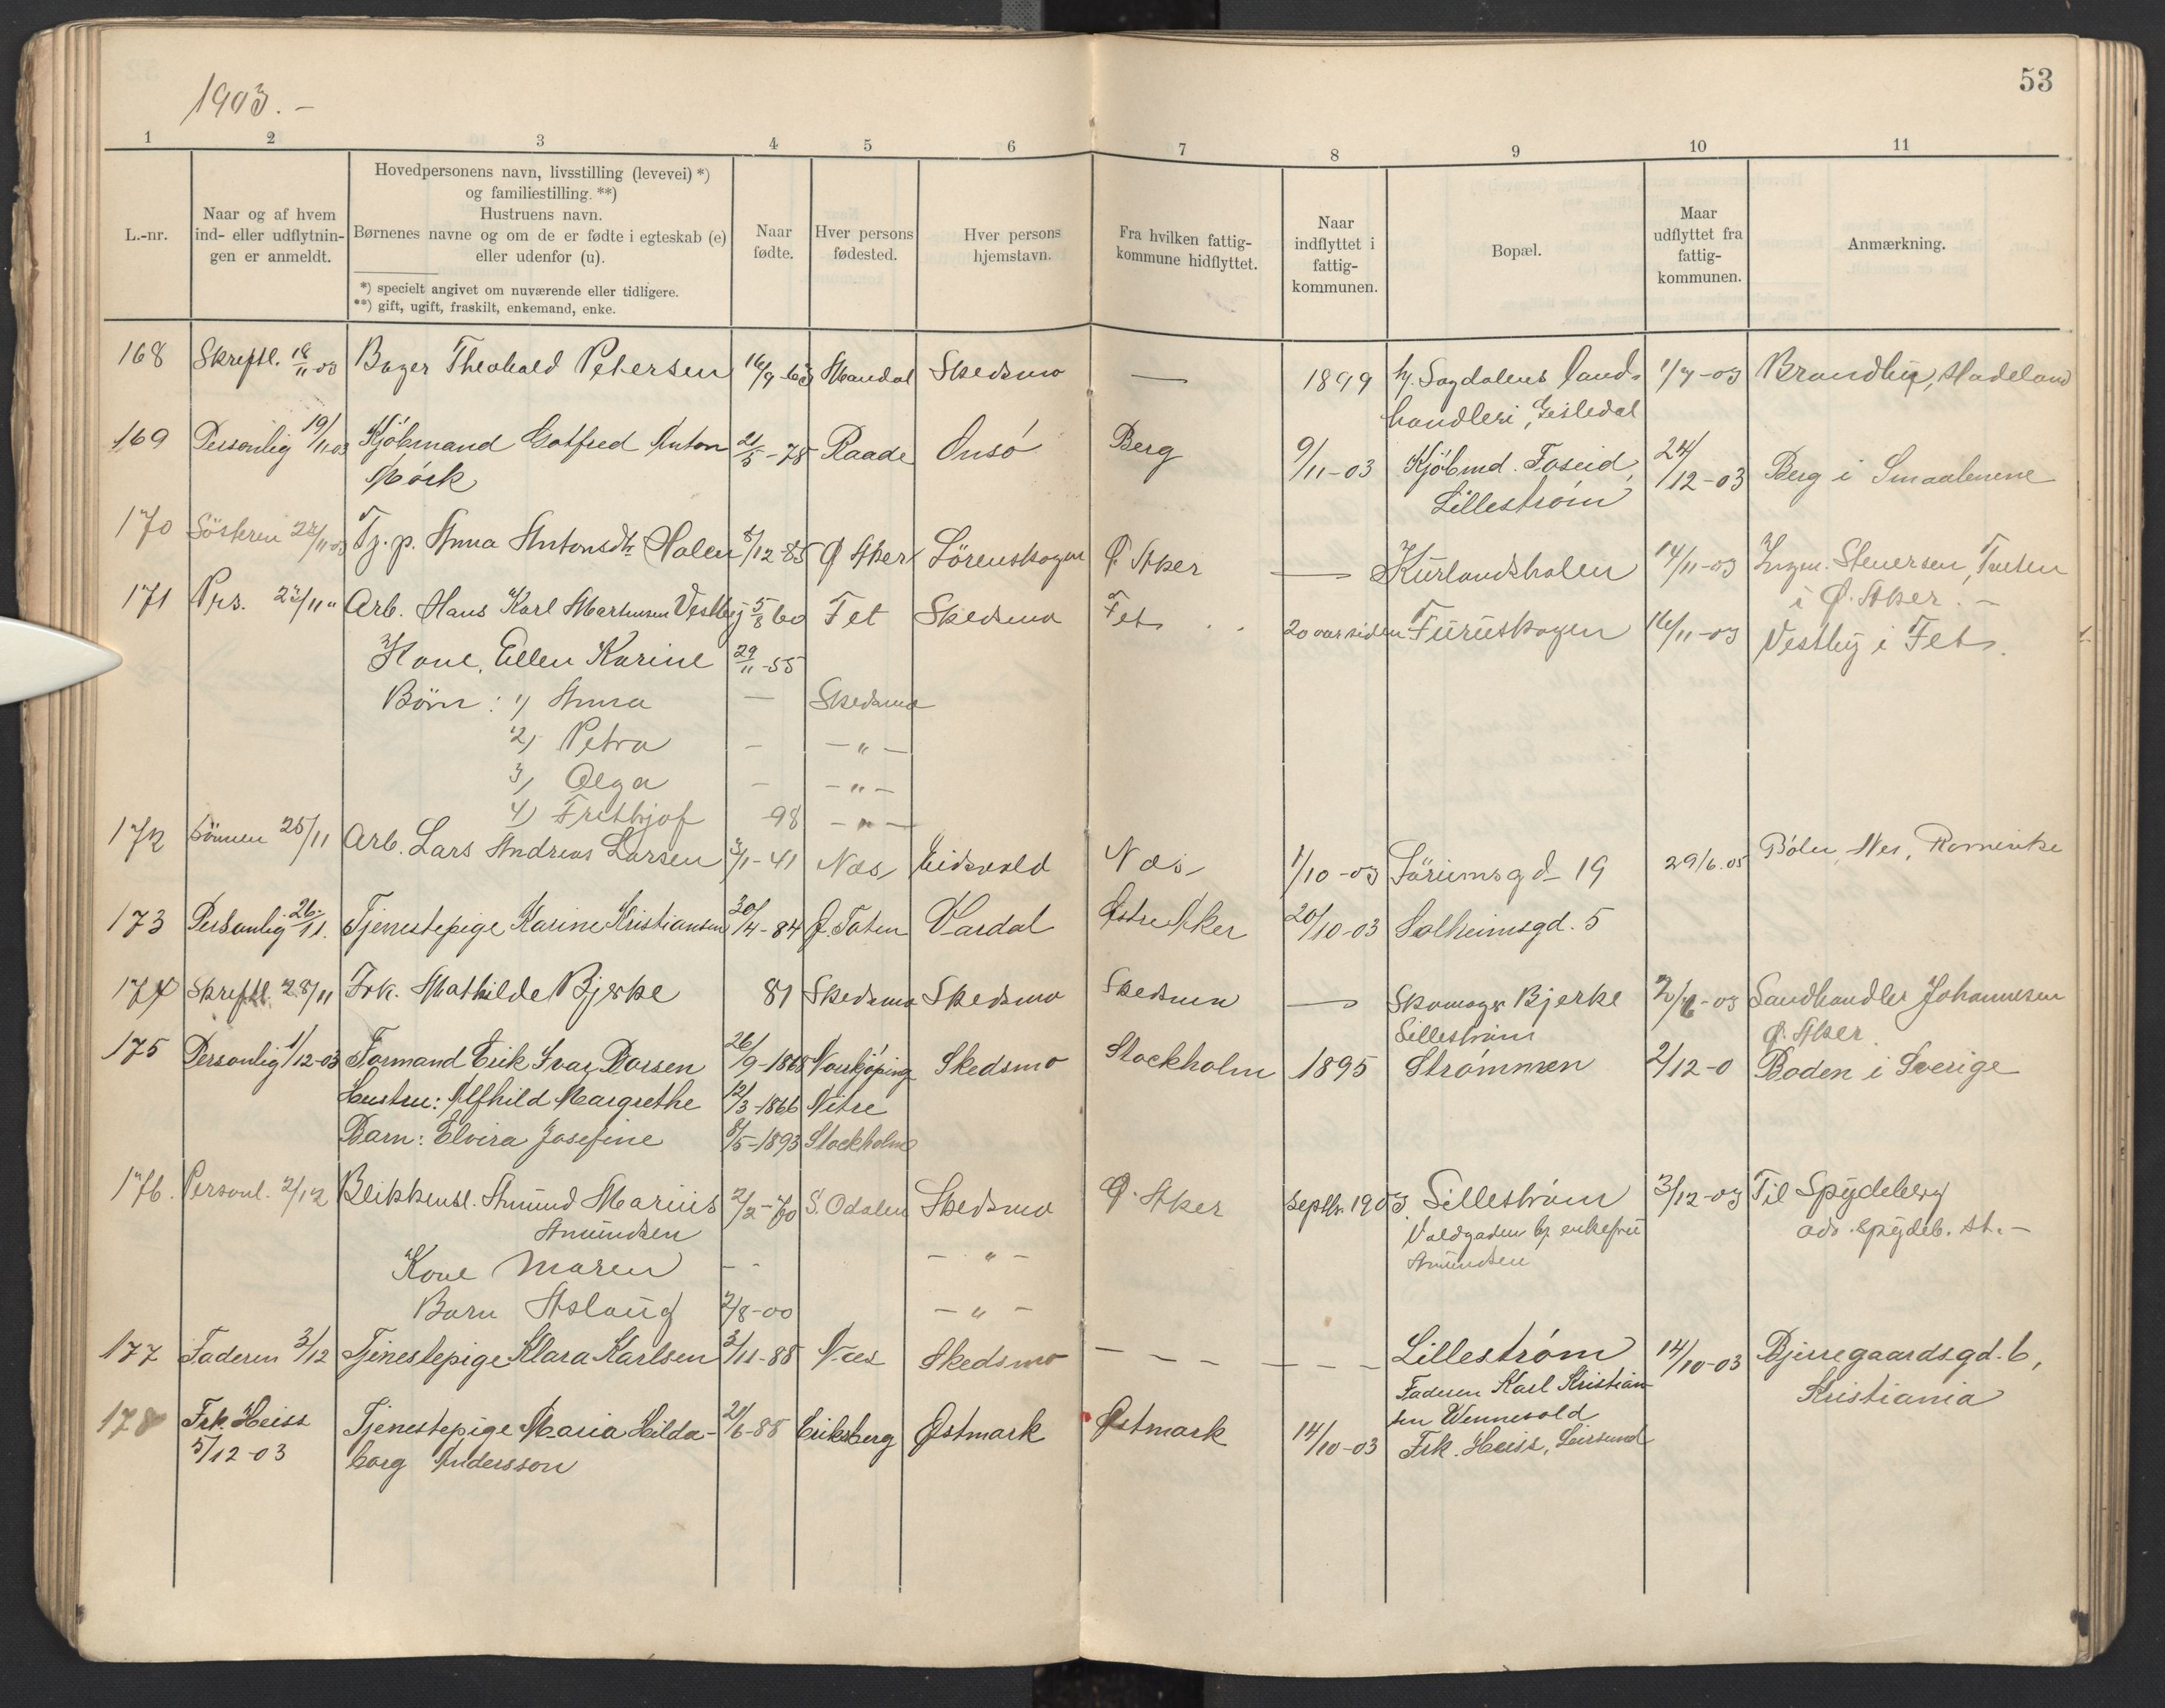 53
1903. –
1 2 3 4 5 6 7 8 9 10 11
L.-nr.
Naar og af hvem
ind- eller udflytnin-
gen er anmeldt.
Hovedpersonens navn, livsstilling (levevei) *)
og familiestilling. **)
Hustruens navn.
Børnenes navne og om de er fødte i egteskab (e)
eller udenfor (u).
*) specielt angivet om nuværende eller tidligere.
**) gift, ugift, fraskilt, enkemand, enke.
Naar
fødte.
Hver persons
fødested.
Hver persons
hjemstavn.
Fra hvilken fattig-
kommune hidflyttet.
Naar
indflyttet i
fattig-
kommunen.
Bopæl.
Maar
udflyttet fra
fattig-
kommunen.
Anmærkning.
168 Skriftl. 18/11 03 Bager Theobald Petersen 16/9-63 Mandal Skedsmo — 1899 hj. Sagdalens land- 1/7-03 Brandbu, Hadeland
handleri,
169 Personlig 19/11 03 Kjøbmand Gotfred Anton 21/5-78 Raade Onsö Berg 9/11-03 Kjøbmd. Foseid, 24/12-03 Berg i Smaalenene
Mörk Lillestrøm
170 Søsteren 11-03 Tj. p. Anna Antonsdtr Holen 5/12-85 Ø Aker Lörenskogen Ø. Aker — Kurlandsholen 14/11-03 Ingm. Stenersen,
i Ø. Aker. –
171 Prs. 23/11 " Arb. Hans Karl Martinsen Vestby 5/8 60 Fet Skedsmo Fet 20 aar siden Furuskogen 16/11-03 Vestby i Fet.
Kone, Ellen Karine 29/11-55
Börn: 1) Anna — Skedsmo
2) Petra – – " –
3) Olga – – " –
4) Frithjof 98 – " –
172 Sönnen 25/11 Arb. Lars Andreas Larsen 3/1-41 Næs Eidsvold Næs 1/10-03 Sörumsgd 19 29/6.05 Böler Nes, Romerike
173 Personlig 26/11. Tjenestepige Karine Kristiansen 30/4-84 Ø. Toten Vardal Østre Aker 20/10-03 Solheimsgd. 5
174 Skriftl. 28/11 Frk. Mathilde Bjerke 81 Skedsmo Skedsmo Skedsmo — Skomager Bjerke 03 Landhandler Johannesen
Lillestrøm Ø. Aker
175 Personlig 1/12-03 Formand Erik Ivar Dorsen 26/9-1868 Norrkjöping Skedsmo Stockholm 1895 Strömmen 2/12-0 Boden i Sverige
Hustru: Alfhild Margrethe 12/3-1866 Nitre
Barn: Elvira Josefine 8/5-1893 Stockholm
176. Personl. 2/12 Blikkensl. Amund Marius 2/2-70 S. Odalen Skedsmo Ø. Aker Septbr. 1903 Lilleström 3/12-03 Til Spydeberg
Amundsen Voldgaden hj. enkefru adr. Spydeb. st. –
Kone Maren – – – " – Amundsen
Barn Aslaug 7/8-00 – " –
177 Faderen 3/12 Tjenestepige Klara Karlsen 3/11-88 Næs Skedsmo – – – – – – Lilleström 14/10-03 Bjerregaardsgd. 6,
Faderen Karl Kristian- Kristiania
sen Wennevold
178 Frk Heiss Tjenestepige Maria Hilda- 21/6-88 Eriksberg Østmark Østmark 14/10-03 Frk. Heiss, Leirsund
5/12-03 borg Andersson